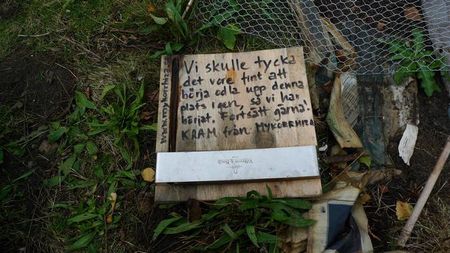 Vi skulle tycka
det vore fint att
börja odla upp denna
plats igen, så vi har
börjat. Fortsätt gärna!
KRAM från MYKORRHIZA